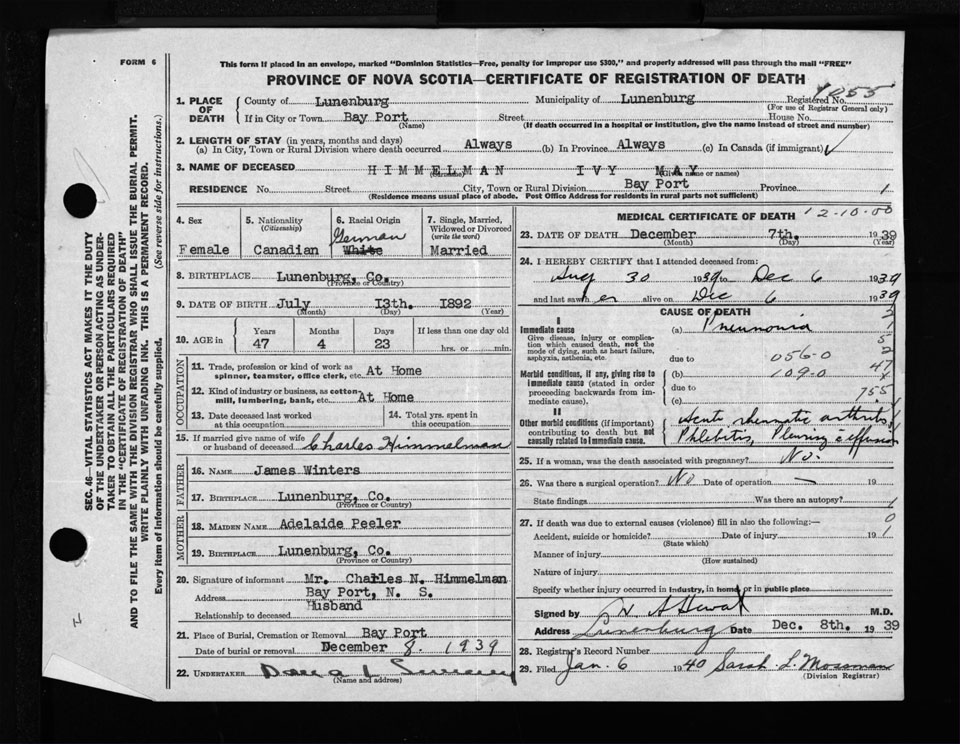 FORM 6
This form if placed in an envelope, marked "Dominion Statistics—Free, penalty for improper use $300," and properly addressed will pass through the mail "FREE"
PROVINCE OF NOVA SCOTIA—CERTIFICATE OF REGISTRATION OF DEATH
1055
1. PLACE OF DEATH
County of Lunenburg Municipality of Lunenburg Registered No.
(For use of Registrar General only)
If in City or Town Bay Port Street House No.
(Name) (If death occurred in a hospital or institution, give the name instead of street and number)
2. LENGTH OF STAY (in years, months and days)
(a) In City, Town or Rural Division where death occurred Always (b) In Province Always (c) In Canada (if immigrant)
3. NAME OF DECEASED HIMMELMAN IVY MAY
(Surname) (Given name or names)
RESIDENCE No. Street City, Town or Rural Division Bay Port Province 1
(Residence means usual place of abode. Post Office Address for residents in rural parts not sufficient)
4. Sex
Female
5. Nationality
(Citizenship)
Canadian
6. Racial Origin
German
White
7. Single, Married, Widowed or Divorced
(write the word)
Married
8. BIRTHPLACE Lunenburg, Co.
(Province or Country)
9. DATE OF BIRTH July 13th. 1892
(Month) (Day) (Year)
10. AGE in
Years Months Days If less than one day old
47 4 23 hrs. or min.
OCCUPATION
11. Trade, profession or kind of work as spinner, teamster, office clerk, etc. At Home
12. Kind of industry or business, as cotton mill, lumbering, bank, etc. At Home
13. Date deceased last worked at this occupation
14. Total yrs. spent in this occupation
15. If married give name of wife or husband of deceased Charles Himmelman
FATHER
16. NAME James Winters
17. BIRTHPLACE Lunenburg, Co.
(Province or Country)
MOTHER
18. MAIDEN NAME Adelaide Peeler
19. BIRTHPLACE Lunenburg, Co.
(Province or Country)
20. Signature of informant Mr. Charles N. Himmelman
Address Bay Port, N. S.
Relationship to deceased Husband
21. Place of Burial, Cremation or Removal Bay Port
Date of burial or removal December 8. 1939
22. UNDERTAKER
(Name and address)
MEDICAL CERTIFICATE OF DEATH 12-10-00
23. DATE OF DEATH December 7th. 1939
(Month) (Day) (Year)
24. I HEREBY CERTIFY that I attended deceased from:
Aug 30 1939 to Dec 6 1939
and last saw her alive on Dec 6 1939
CAUSE OF DEATH
I
Immediate cause (a) Pneumonia
Give disease, injury or complication which caused death, not the mode of dying, such as heart failure, asphyxia, asthenia, etc.
due to 056-0
Morbid conditions, if any, giving rise to immediate cause (stated in order proceeding backwards from immediate cause). (b) 109-0
due to 755
(c)
II
Other morbid conditions (if important) contributing to death but not causally related to immediate cause.
Acute rheumatic arthritis
Phlebitis, Pleurisy & effusion
25. If a woman, was the death associated with pregnancy? No.
26. Was there a surgical operation? No Date of operation — 19
State findings Was there an autopsy?
27. If death was due to external causes (violence) fill in also the following:—
Accident, suicide or homicide? Date of injury 19
(State which)
Manner of injury
(How sustained)
Nature of injury
Specify whether injury occurred in industry, in home, or in public place
Signed by M.D.
Address Lunenburg Date Dec. 8th. 1939
28. Registrar's Record Number
29. Filed Jan. 6 1940 Sarah L. Mossman
(Division Registrar)
SEC. 46—VITAL STATISTICS ACT MAKES IT THE DUTY
OF THE UNDERTAKER OR PERSON ACTING AS UNDER-
TAKER TO OBTAIN ALL THE PARTICULARS REQUIRED
IN THE "CERTIFICATE OF REGISTRATION OF DEATH"
AND TO FILE THE SAME WITH THE DIVISION REGISTRAR WHO SHALL ISSUE THE BURIAL PERMIT.
WRITE PLAINLY WITH UNFADING INK. THIS IS A PERMANENT RECORD.
Every item of information should be carefully supplied. (See reverse side for instructions.)